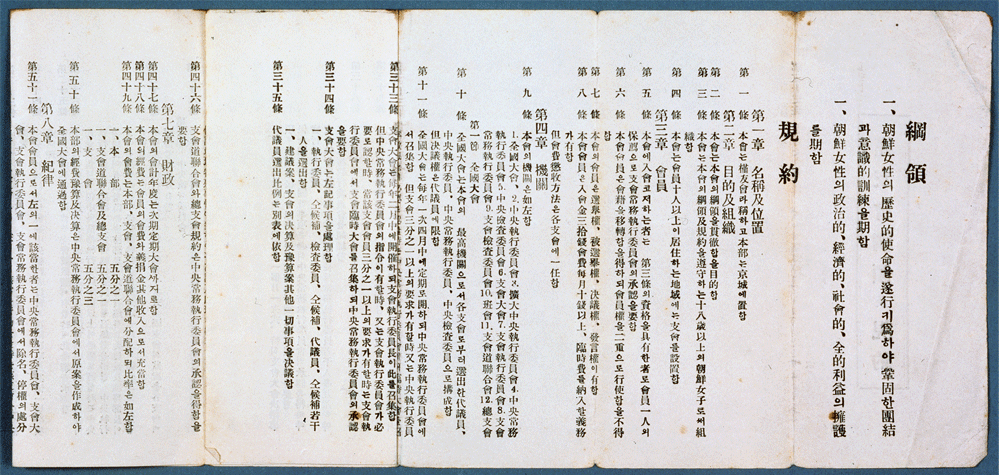 綱領
一、朝鮮女性의 歷史的使命을 遂行키爲하야 鞏固한 團結
과 意識的 訓練을 期함
一、朝鮮女性의 政治的、經濟的、社會的、全的 利益의 擁護
를 期함
規約
第一章 名稱及位置
第一條 本會는 槿友會라 稱하고 本部는 京城에 置함
第二章 目的及組織
第二條 本會는 本會의 綱領을 貫徹함을 目的함
第三條 本會는 本會의 綱領及規約을 遵守하는 十八歲以上의 朝鮮女子로써 組
織함
第四條 本會는 會員十人以上이 居住하는 地域에는 支會를 設置함
第三章 會員
第五條 本會에 入會코저하는 者는 第三條의 資格을 具有한 者로 會員一人의
保薦으로 支會常務執行委員會의 承認을 要함
第六條 本會會員은 會籍을 移轉함을 得하되 會員權을 二重으로 行使함을 不得
함
第七條 本會의 會員은 選擧權、被選擧權、決議權、發言權이 有함
第八條 本會會員은 入會金三拾錢 會費每月十錢以上、臨時費를 納入할 義務
가 有함
但 會費懲收方法은 各支會에 一任함
第四章 機關
第九條 本會의 機關은 如左함
1.全國大會、2.中央執行委員會 3.擴大中央執行委員會 4.中央常務
執行委員會 5.中央檢査委員會 6.支會大會 7.支會執行委員會 8.支會
常務執行委員會 9.支會檢査委員會 10.班會 11.支會道聯合會 12.總支會
第一節 全國大會
第十條 全國大會는 本會의 最高機關으로서 各支會로부터 選出한 代議員、
中央執行委員、中央常務執行委員、中央檢査委員으로 構成함
但 決議權은 代議員에 限함
第十一條 全國大會는 每年一次 四月中에 定期로 開하되 中央執行委員會에
서 召集함 但 支會三分之一以上의 要求가 有할時又는 中央執行委員
第三十三條
但 中央常務執行委員會의 指令이 有할時、又는 支會執行委員會가 必
要로 認할時、當該支會會員三分之一以上의 要求가 有할時는 支會執
行委員會에서 支會臨時大會를 召集하되 中央常務執行委員會의 承認
을 要함
第三十四條 支會大會는 左記事項을 處理함
一、執行委員、仝候補、檢査委員、仝候補、代議員、仝候補若干
人을 選出함
一、建議案、支會의 決算及豫算案其他一切事項을 決議함
第三十五條 代議員選出比例는 別表에 依함
第四十六條 支會道聯合會와 總支會規約은 中央常務執行委員會의 承認을 得함을
要함
第七章 財政
第四十七條 本會의 會計年度는 次期定期大會까지로 함
第四十八條 本會經費는 會員의 會費와 義捐金及其他收入으로서 充當함
第四十九條 本會의 會費는 本部、支會、支會道聯合會에 分配하되 比率은 如左함
一、本部 五分之一
一、支會道聯合會及總支會 五分之一
一、支會 五分之三
第五十條 本部의 經費豫算及決算은 中央常務執行委員會에서 原案을 作成하야
全國大會에 通過함
第八章 紀律
第五十一條 本會會員으로서 左의 一에 該當한 者는 中央常務執行委員會、支會大
會、支會執行委員會、支會常務執行委員會에서 除名、停權의 處分